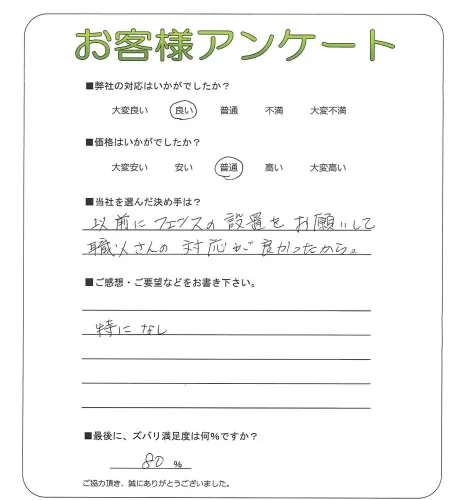 お客様アンケート
■弊社の対応はいかがでしたか？
大変良い 良い 普通 不満 大変不満
■価格はいかがでしたか？
大変安い 安い 普通 高い 大変高い
■当社を選んだ決め手は？
以前にフェンスの設置をお願いして
職人さんの対応が良かったから。
■ご感想・ご要望などをお書き下さい。
特になし
■最後に、ズバリ満足度は何%ですか？
80 %
ご協力頂き、誠にありがとうございました。